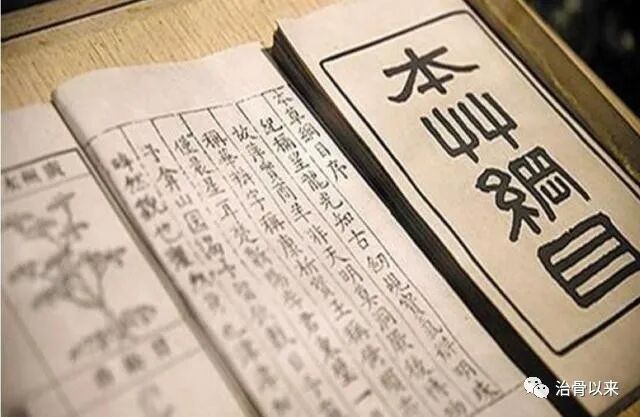 本艸綱目
本草綱目序
紀稱望龍光知古劍覘寶氣辨明
故萍實商羊非天明莫洞厥後博
稱華辨字稱康析寶玉稱倚頓
僅晨星耳楚蘄陽李君東璧一
予弇山園謁予留飲
睟然貌也癯然身也
治骨以来